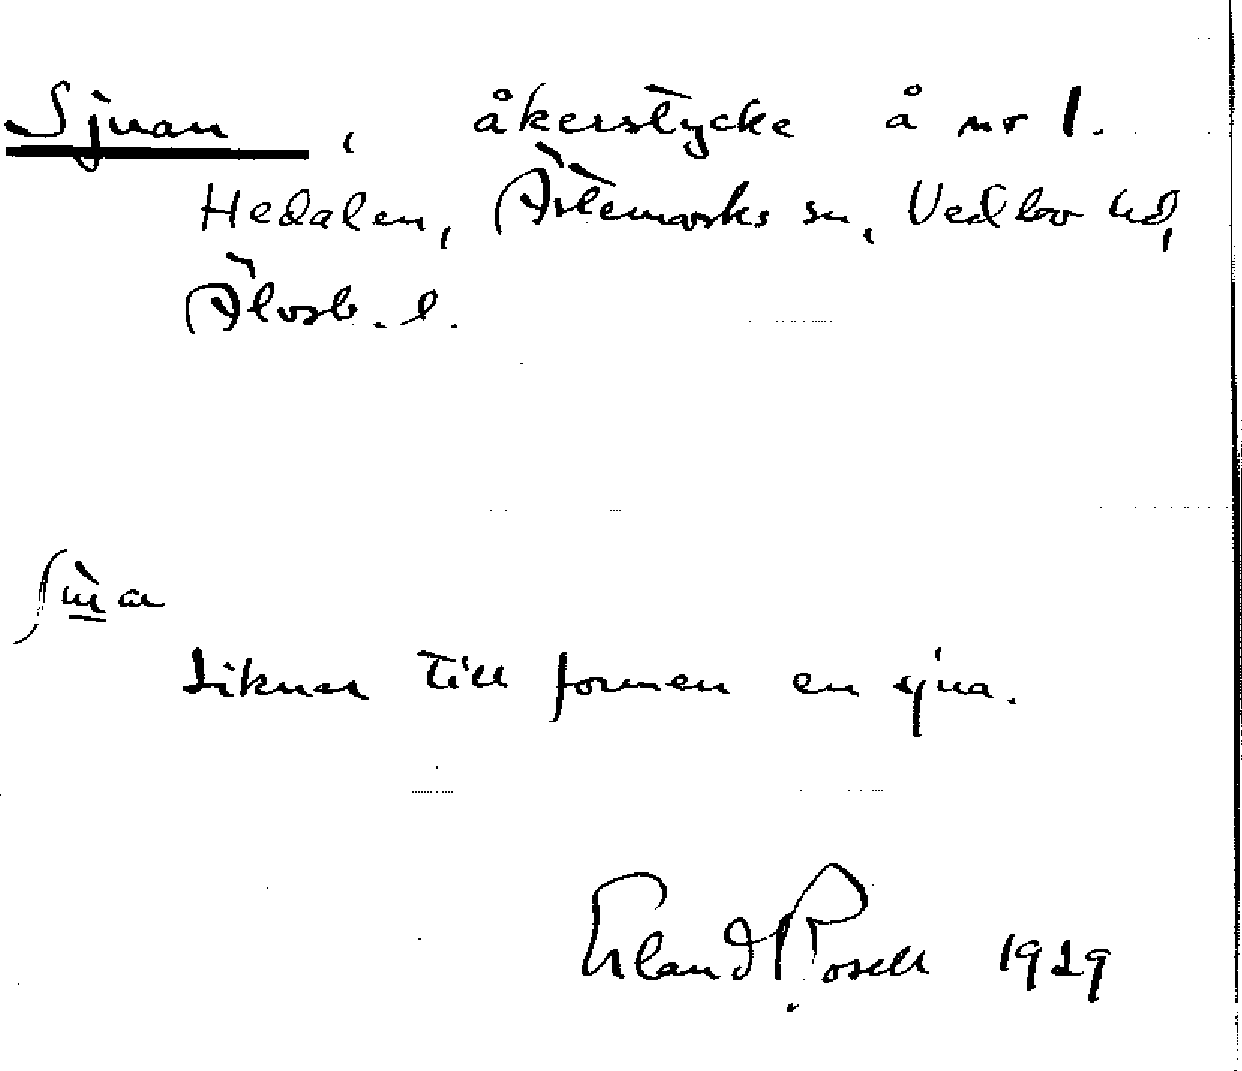 Sjuan, åkerstycke å nr 1.
Hedalen, Ärtemarks sn, Vedbo hd,
Älvsb. l.
liknar till formen en sjua.
Erland Rosell 1929